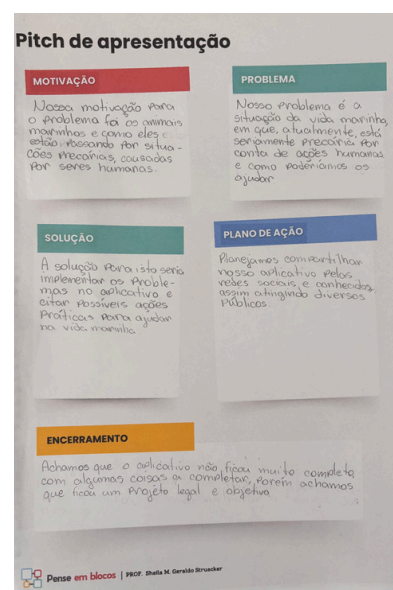 Pitch de apresentação
MOTIVAÇÃO
Nossa motivação para
o problema foi os animais
marinhos e como eles
estão passando por situa-
ções precárias, causadas
por seres humanos.
PROBLEMA
Nosso problema é a
situação da vida marinha,
em que, atualmente, está
seriamente precária por
conta de ações humanas
e como poderíamos os
ajudar
SOLUÇÃO
A solução para isto seria
implementar os proble-
mas no aplicativo e
citar possíveis ações
práticas para ajudar
na vida marinha
PLANO DE AÇÃO
Planejamos compartilhar
nosso aplicativo pelas
redes sociais, e conhecidos,
assim atingindo diversos
públicos.
ENCERRAMENTO
Achamos que o aplicativo não ficou muito completo,
com algumas coisas a completar, porém achamos
que ficou um projeto legal e objetivo
Pense em blocos | PROF. Sheila M. Geraldo Struecker